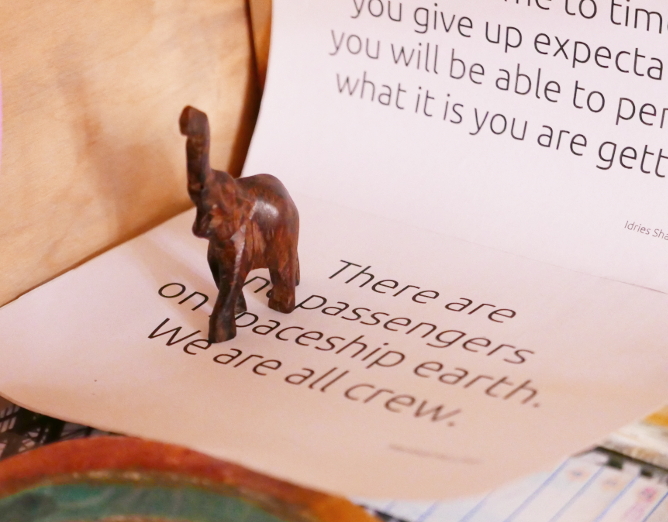 to tim
you give up expecta
you will be able to per
what it is you are gett
Idries Sha
There are
no passengers
on spaceship earth.
We are all crew.